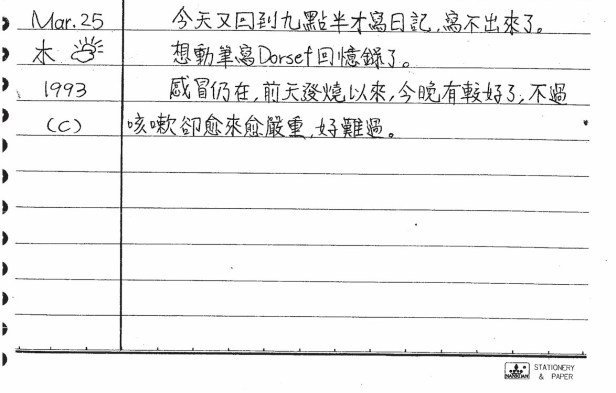 Mar. 25 今天又回到九點半才寫日記,寫不出來了。
木 想動筆寫Dorset回憶錄了。
1993 感冒仍在,前天發燒以來,今晚有較好了,不過
(C) 咳嗽卻愈來愈嚴重,好難過。
STATIONERY
& PAPER